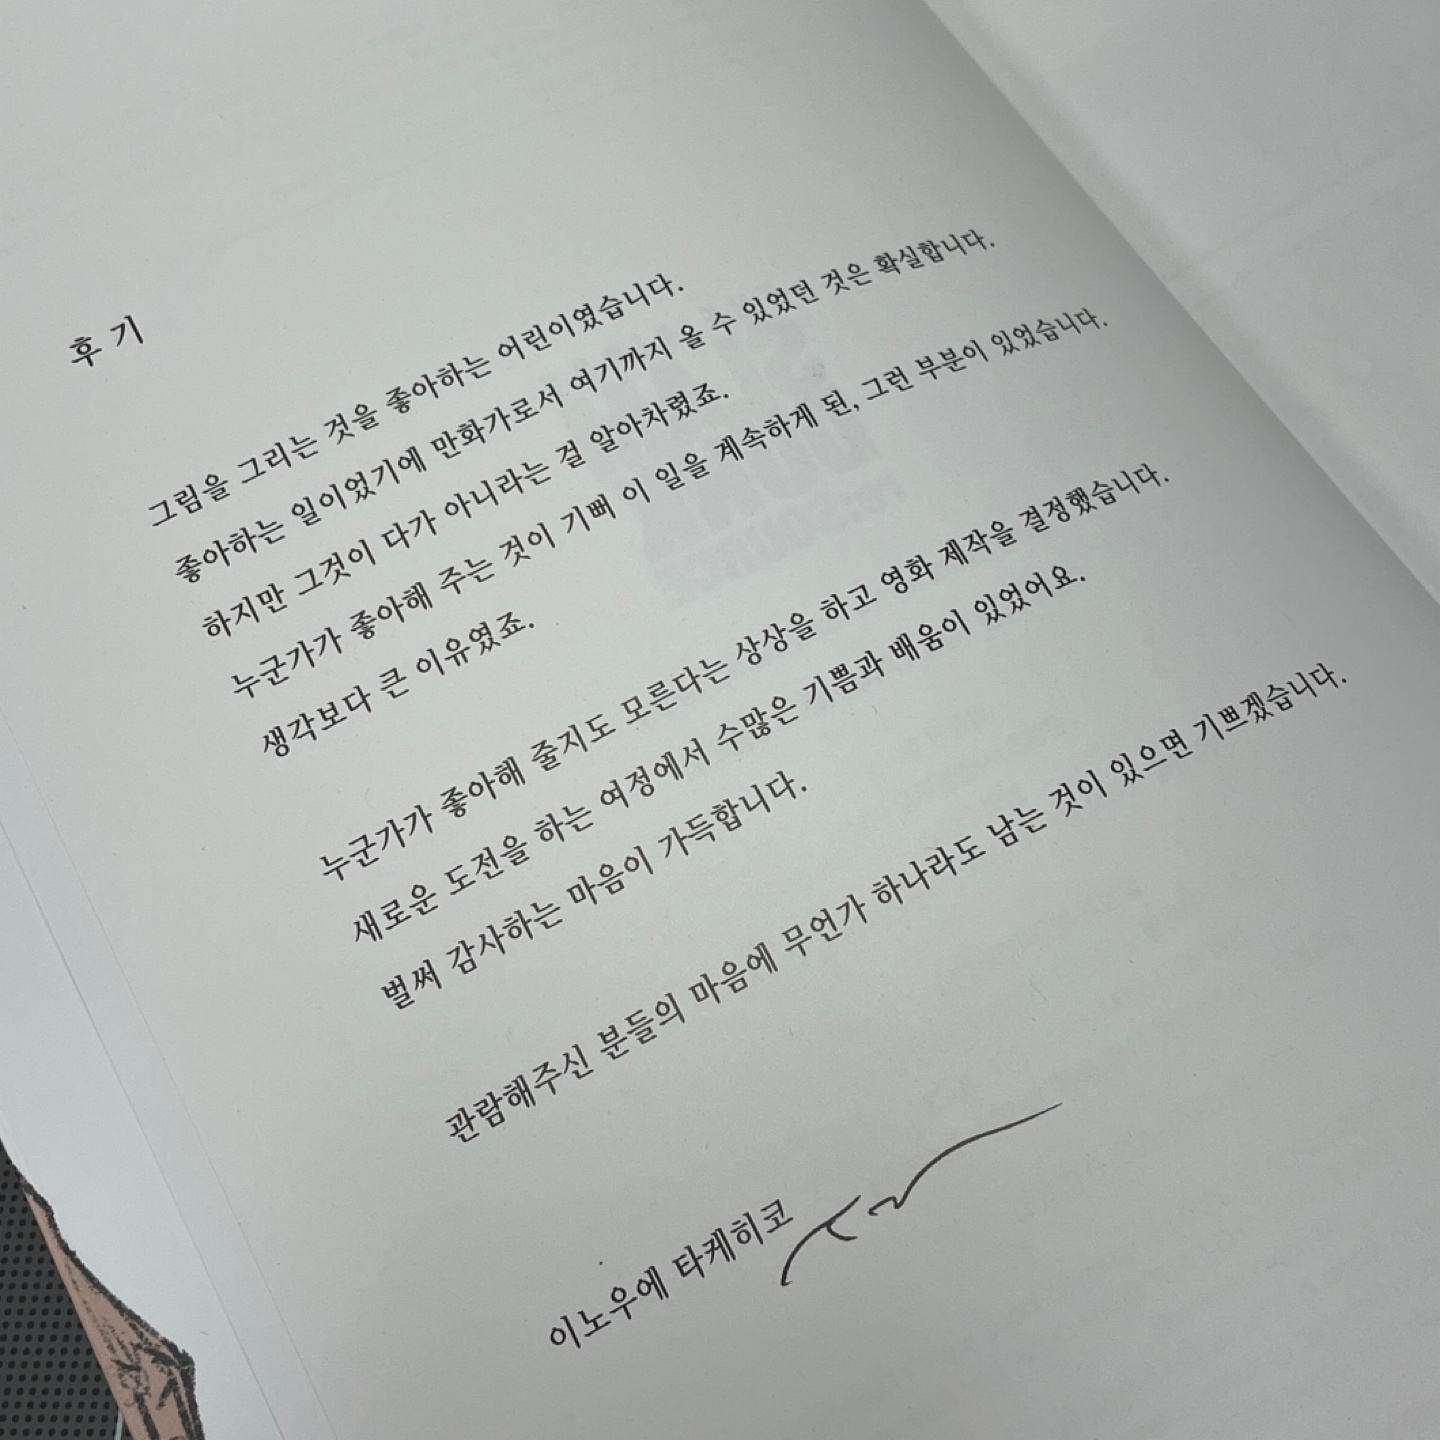 후 기
그림을 그리는 것을 좋아하는 어린이였습니다.
좋아하는 일이었기에 만화가로서 여기까지 올 수 있었던 것은 확실합니다.
하지만 그것이 다가 아니라는 걸 알아차렸죠.
누군가가 좋아해 주는 것이 기뻐 이 일을 계속하게 된, 그런 부분이 있었습니다.
생각보다 큰 이유였죠.
누군가가 좋아해 줄지도 모른다는 상상을 하고 영화 제작을 결정했습니다.
새로운 도전을 하는 여정에서 수많은 기쁨과 배움이 있었어요.
벌써 감사하는 마음이 가득합니다.
관람해주신 분들의 마음에 무언가 하나라도 남는 것이 있으면 기쁘겠습니다.
이노우에 타케히코